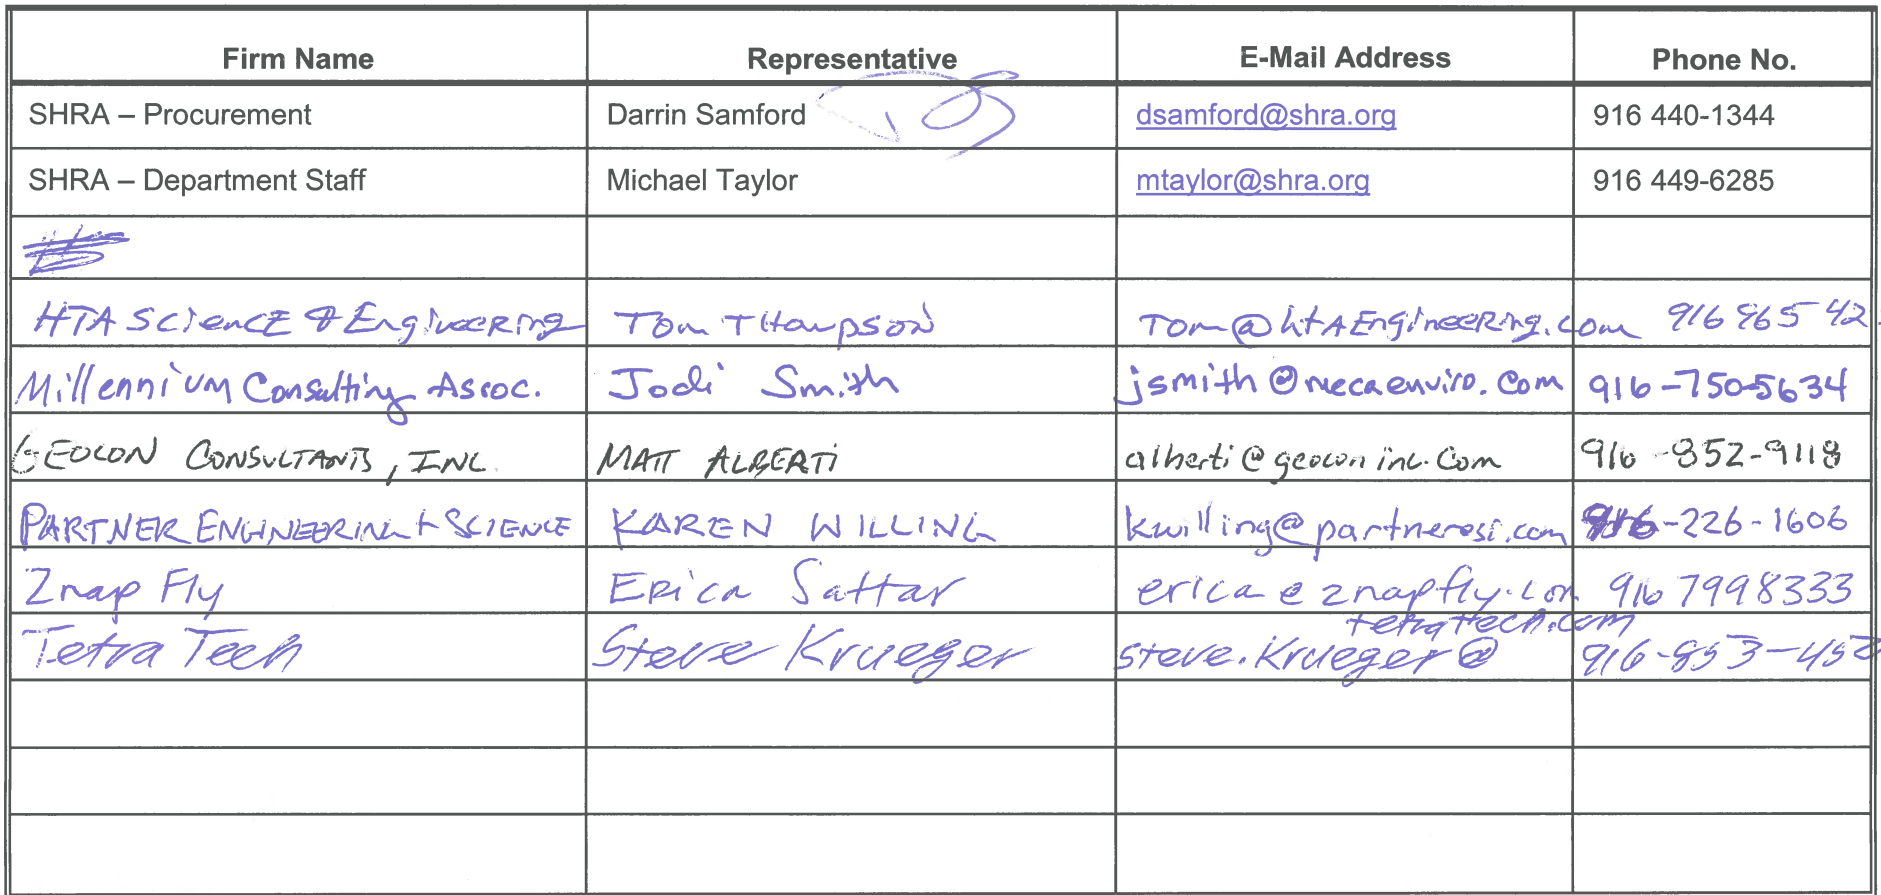 Firm Name Representative E-Mail Address Phone No.
SHRA – Procurement Darrin Samford dsamford@shra.org 916 440-1344
SHRA – Department Staff Michael Taylor mtaylor@shra.org 916 449-6285
HTA SCIENCE & ENGINEERING TOM THOMPSON TOM@HTAENGINEERING.COM 916 965 42
Millennium Consulting Assoc. Jodi Smith jsmith@mecaenviro.com 916-750-5634
GEOCON CONSULTANTS, INC. MATT ALBERTI alberti@geoconinc.com 916-852-9118
PARTNER ENGINEERING + SCIENCE KAREN WILLING kwilling@partneresi.com 916-226-1606
Znap Fly Erica Sattar erica@znapfly.com 916 7998333
Tetra Tech Steve Krueger steve.Krueger@ 916-853-45
tetratech.com